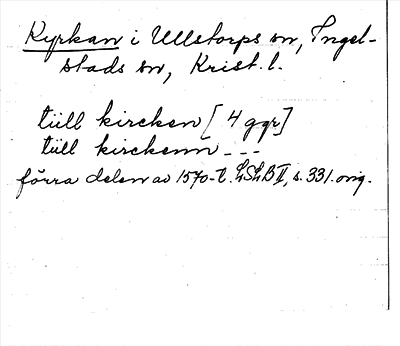 Kyrkan i Ullstorps sn, Ingel-
stads sn, Krist. l.
tüll kircken [4 ggr]
tüll kirckenn ---
förra delen av 1570-t. LSLB II, s. 331. orig.